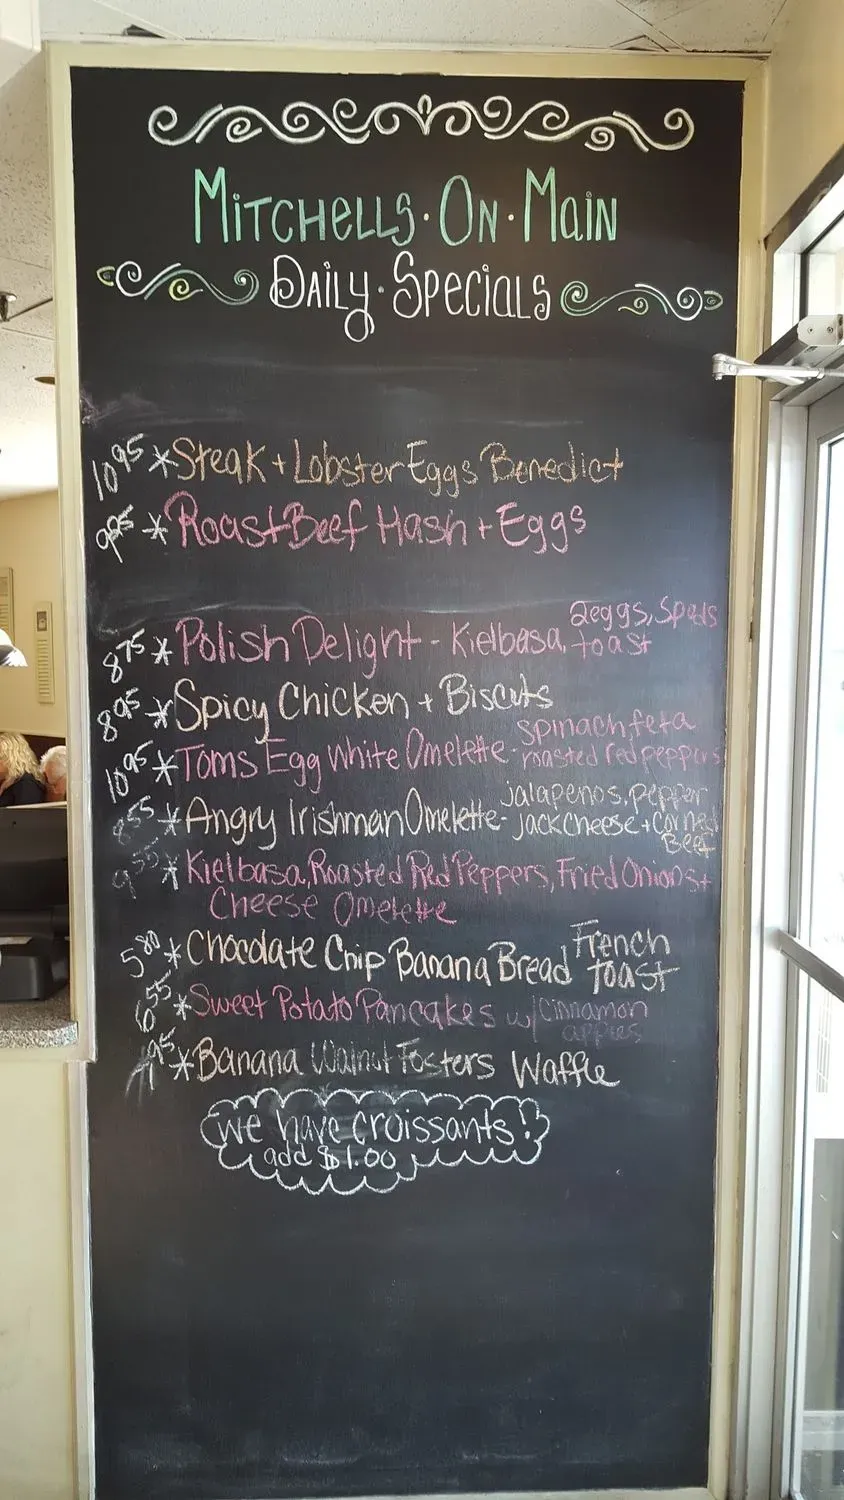 Mitchells · On · Main
Daily · Specials
10.95 * Steak + Lobster Eggs Benedict
* Roast Beef Hash + Eggs
8.75 * Polish Delight - Kielbasa, 2eggs, Spuds
toast
8.95 * Spicy Chicken + Biscuts
10.95 * Toms Egg White Omelette - spinach, feta
roasted red peppers
8.55 * Angry Irishman Omelette - jalapenos, pepper
jack cheese + corned
Beef
9.50 * Kielbasa, Roasted Red Peppers, Fried Onions +
Cheese Omelette
5.80 * Chocolate Chip Banana Bread French
Toast
6.55 * Sweet Potato Pancakes w/ cinnamon
apples
* Banana Walnut Fosters Waffle
we have croissants!
add $1.00